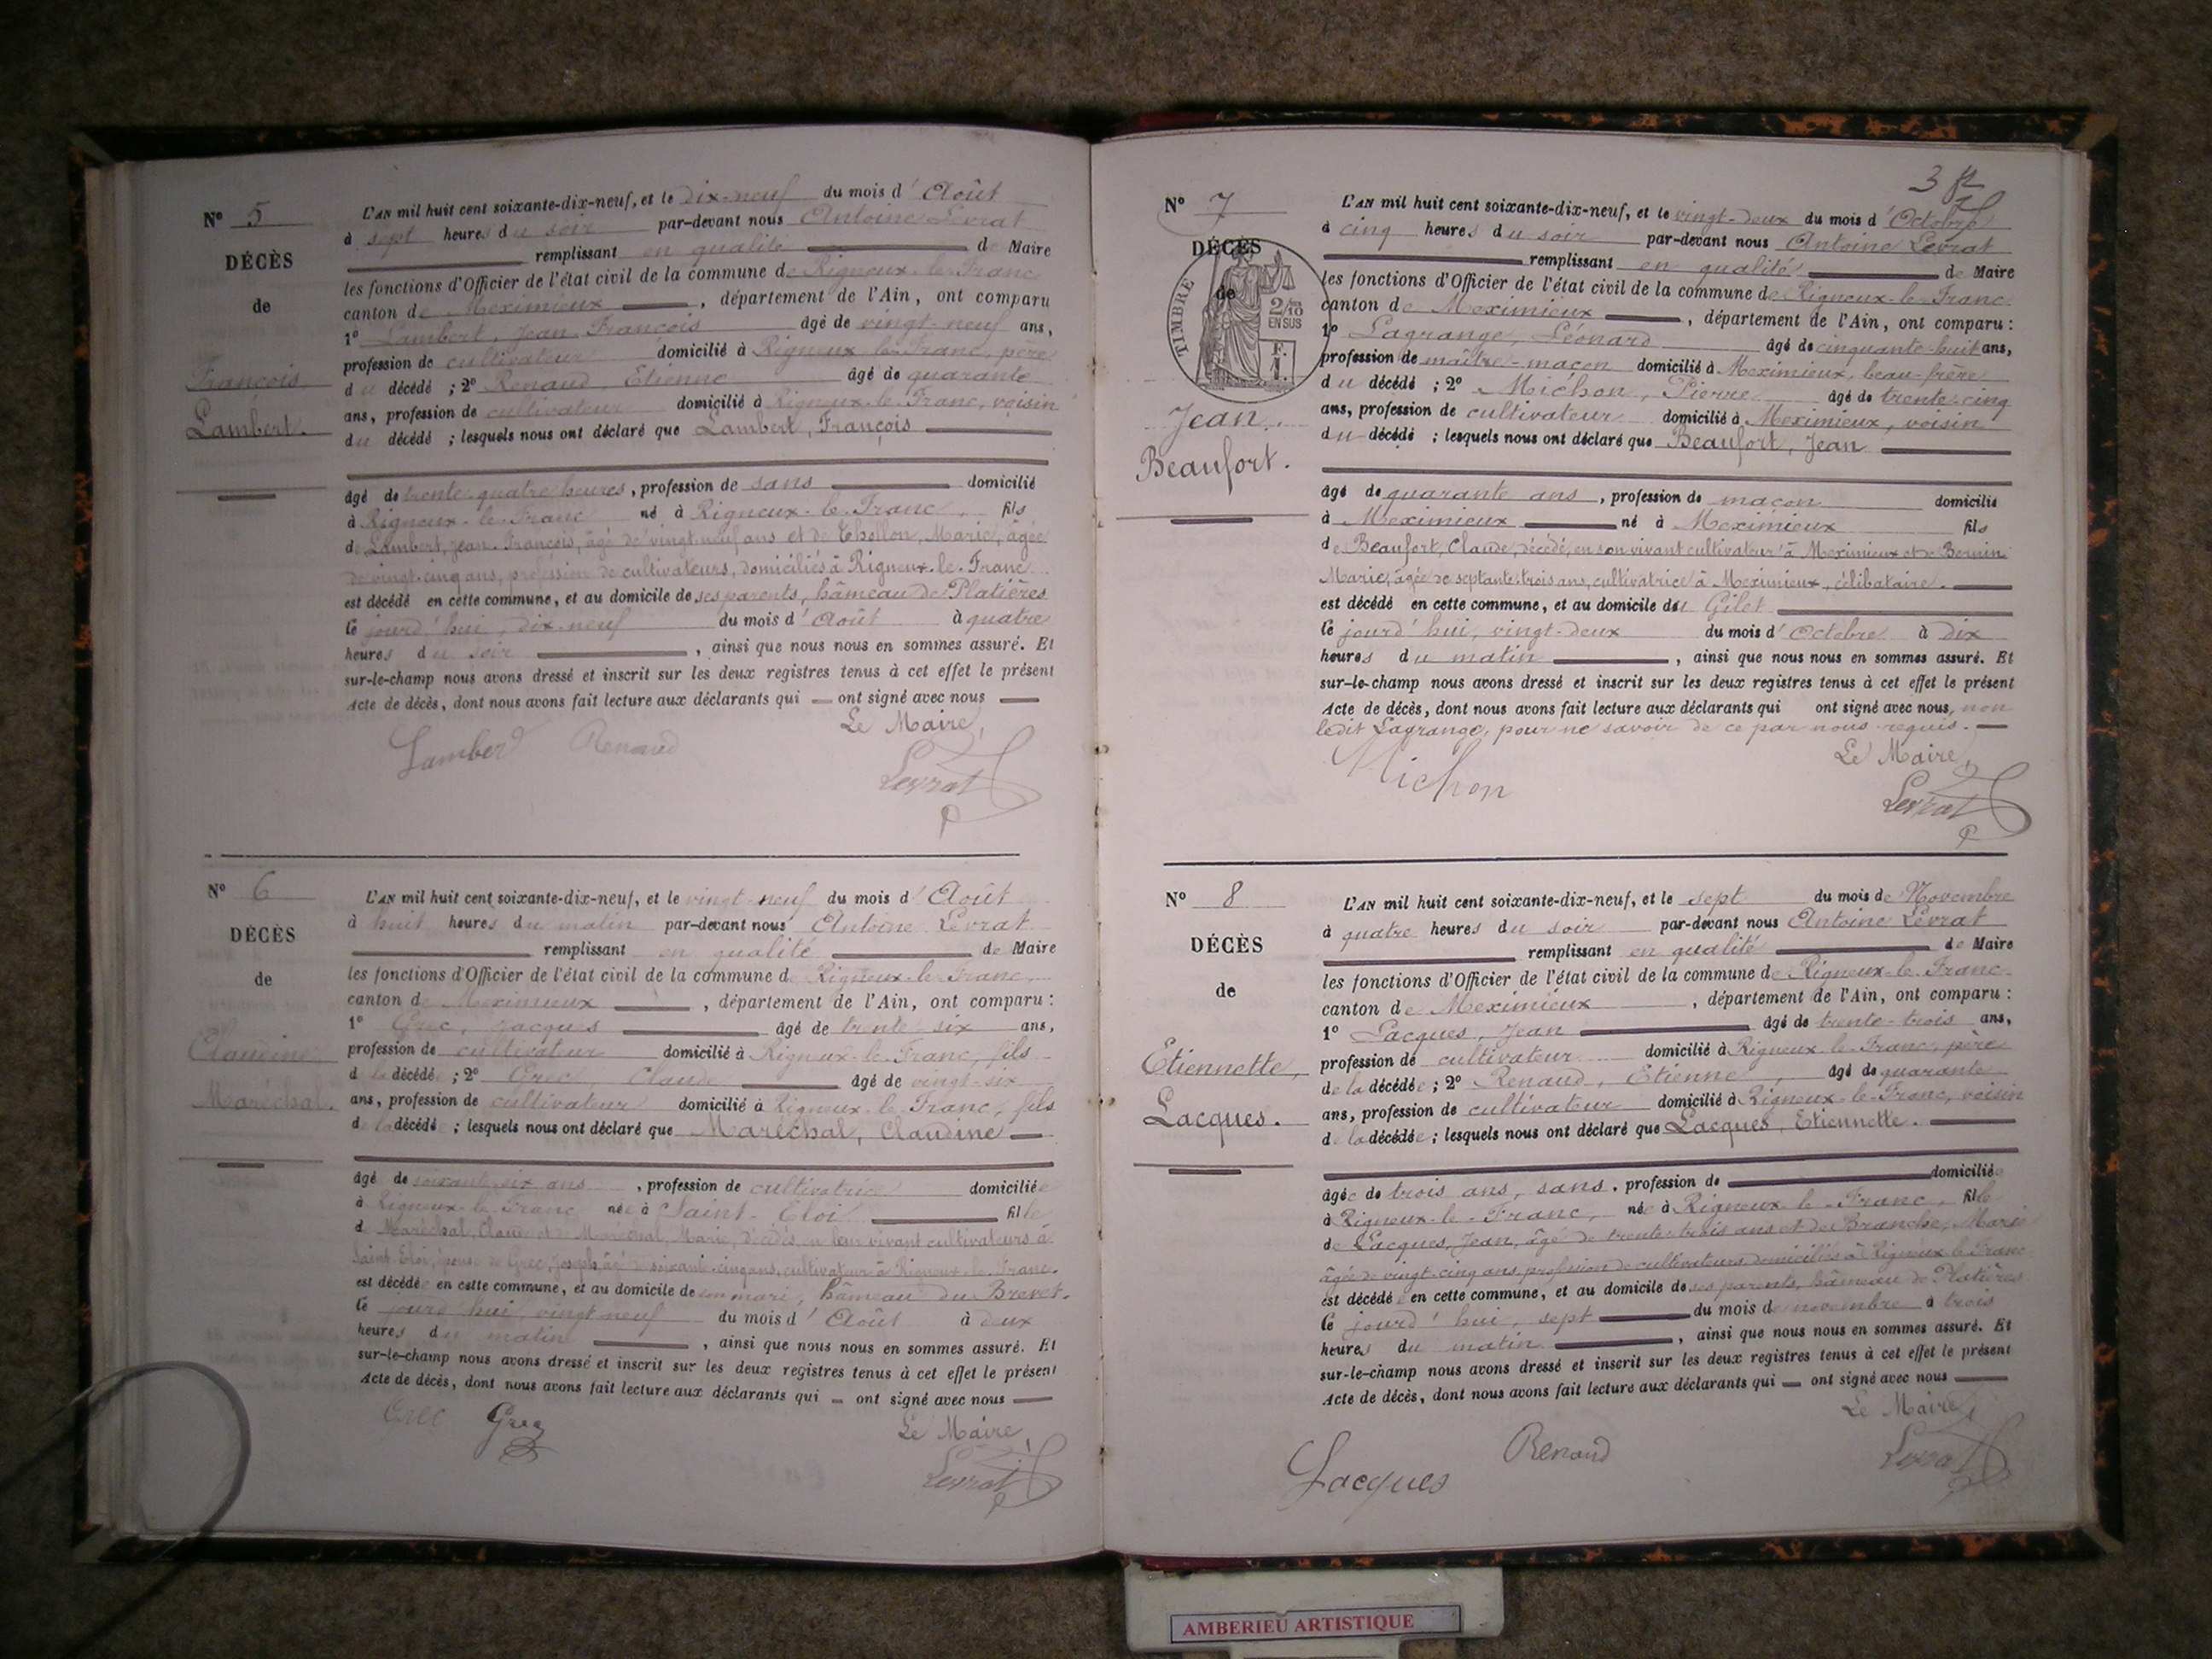 N° 5
DÉCÈS
de
François
Lambert.
L'AN mil huit cent soixante-dix-neuf, et le dix-neuf du mois d'Août
à sept heures du soir par-devant nous Antoine Levrat
remplissant en qualité de Maire
les fonctions d'Officier de l'état civil de la commune de Rigneux-le-Franc
canton de Meximieux, département de l'Ain, ont comparu
1° Lambert, Jean François âgé de vingt-neuf ans,
profession de cultivateur domicilié à Rigneux-le-Franc, père
du décédé ; 2° Renaud, Etienne âgé de quarante
ans, profession de cultivateur domicilié à Rigneux-le-Franc, voisin
du décédé ; lesquels nous ont déclaré que Lambert, François
âgé de trente-quatre heures, profession de sans domicilié
à Rigneux-le-Franc né à Rigneux-le-Franc, fils
de Lambert, Jean-François, âgé de vingt neuf ans et de Thollon, Marie, âgée
de vingt-cinq ans, profession de cultivateurs, domiciliés à Rigneux-le-Franc
est décédé en cette commune, et au domicile de ses parents, hâmeau de Platières
ce jourd'hui, dix-neuf du mois d'Août à quatre
heures du soir, ainsi que nous nous en sommes assuré. Et
sur-le-champ nous avons dressé et inscrit sur les deux registres tenus à cet effet le présent
Acte de décès, dont nous avons fait lecture aux déclarants qui ont signé avec nous
Le Maire,
Lamberd Renaud
Levrat
N° 6
DÉCÈS
de
Claudine
Maréchal.
L'AN mil huit cent soixante-dix-neuf, et le vingt-neuf du mois d'Août
à huit heures du matin par-devant nous Antoine Levrat
remplissant en qualité de Maire
les fonctions d'Officier de l'état civil de la commune de Rigneux-le-Franc
canton de Meximieux, département de l'Ain, ont comparu :
1° Grec, Jacques âgé de trente-six ans,
profession de cultivateur domicilié à Rigneux-le-Franc, fils
de la décédée ; 2° Grec, Claude âgé de vingt-six
ans, profession de cultivateur domicilié à Rigneux-le-Franc, fils
de la décédé ; lesquels nous ont déclaré que Maréchal, Claudine
âgé de soixante-six ans, profession de cultivatrice domiciliée
à Rigneux-le-Franc née à Saint-Eloi fille
de Maréchal, Claude et de Maréchal, Marie, décédés, en leur vivant cultivateurs à
Saint-Eloi, épouse de Grec, Joseph âgé de soixante-cinq ans, cultivateur à Rigneux-le-Franc.
est décédée en cette commune, et au domicile de son mari, hâmeau du Brevet.
ce jourd'hui, vingt neuf du mois d'Août à deux
heures du matin, ainsi que nous nous en sommes assuré. Et
sur-le-champ nous avons dressé et inscrit sur les deux registres tenus à cet effet le présent
Acte de décès, dont nous avons fait lecture aux déclarants qui ont signé avec nous
Le Maire,
Grec Grec
Levrat
3
N° 7
DÉCÈS
de
TIMBRE
2/10
EN SUS
F.
1.
Jean
Beaufort.
L'AN mil huit cent soixante-dix-neuf, et le vingt-deux du mois d'Octobre
à cinq heures du soir par-devant nous Antoine Levrat
remplissant en qualité de Maire
les fonctions d'Officier de l'état civil de la commune de Rigneux-le-Franc
canton de Meximieux, département de l'Ain, ont comparu :
1° Lagrange, Léonard âgé de cinquante-huit ans,
profession de maître-maçon domicilié à Meximieux, beau-frère
du décédé ; 2° Michon, Pierre âgé de trente-cinq
ans, profession de cultivateur domicilié à Meximieux, voisin
du décédé ; lesquels nous ont déclaré que Beaufort, Jean
âgé de quarante ans, profession de maçon domicilié
à Meximieux né à Meximieux fils
de Beaufort, Claude, décédé, en son vivant cultivateur à Meximieux et de Bernin
Marie, âgée de septante-trois ans, cultivatrice à Meximieux, célibataire.
est décédé en cette commune, et au domicile du Gilet
ce jourd'hui, vingt-deux du mois d'Octobre à dix
heures du matin, ainsi que nous nous en sommes assuré. Et
sur-le-champ nous avons dressé et inscrit sur les deux registres tenus à cet effet le présent
Acte de décès, dont nous avons fait lecture aux déclarants qui ont signé avec nous, non
ledit Lagrange, pour ne savoir de ce par nous requis.
Le Maire,
Michon
Levrat
N° 8
DÉCÈS
de
Etiennette,
Lacques.
L'AN mil huit cent soixante-dix-neuf, et le sept du mois de Novembre
à quatre heures du soir par-devant nous Antoine Levrat
remplissant en qualité de Maire
les fonctions d'Officier de l'état civil de la commune de Rigneux-le-Franc
canton de Meximieux, département de l'Ain, ont comparu :
1° Lacques, Jean âgé de trente-trois ans,
profession de cultivateur domicilié à Rigneux-le-Franc, père
de la décédée ; 2° Renaud, Etienne, âgé de quarante
ans, profession de cultivateur domicilié à Rigneux-le-Franc, voisin
de la décédée ; lesquels nous ont déclaré que Lacques, Etiennette.
âgée de trois ans, sans, profession de domiciliée
à Rigneux-le-Franc, née à Rigneux-le-Franc, fille
de Lacques, Jean, âgé de trente-trois ans et de Branche, Marie
âgée de vingt-cinq ans, profession de cultivateurs domiciliés à Rigneux-le-Franc
est décédée en cette commune, et au domicile de ses parents, hâmeau de Platières
ce jourd'hui, sept du mois de novembre à trois
heures du matin, ainsi que nous nous en sommes assuré. Et
sur-le-champ nous avons dressé et inscrit sur les deux registres tenus à cet effet le présent
Acte de décès, dont nous avons fait lecture aux déclarants qui ont signé avec nous
Le Maire,
Lacques Renaud
Levrat
AMBERIEU ARTISTIQUE